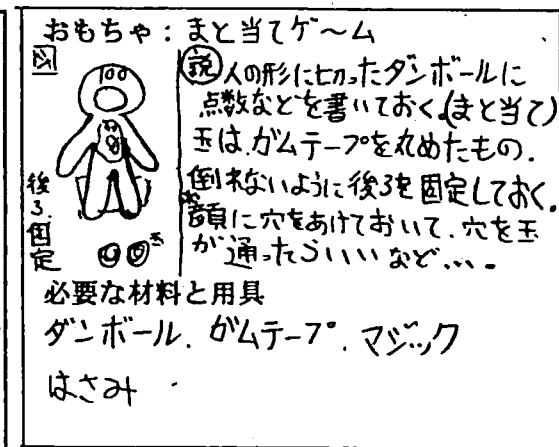 おもちゃ：まと当てゲ〜ム
図
100
後ろ固定
玉
説 人の形に切ったダンボールに
点数などを書いておく。(まと当て)
玉は、ガムテープを丸めたもの。
倒れないように後ろを固定しておく。
顔に穴をあけておいて、穴を玉
が通ったらいいなど…。
必要な材料と用具
ダンボール、ガムテープ、マジック
はさみ